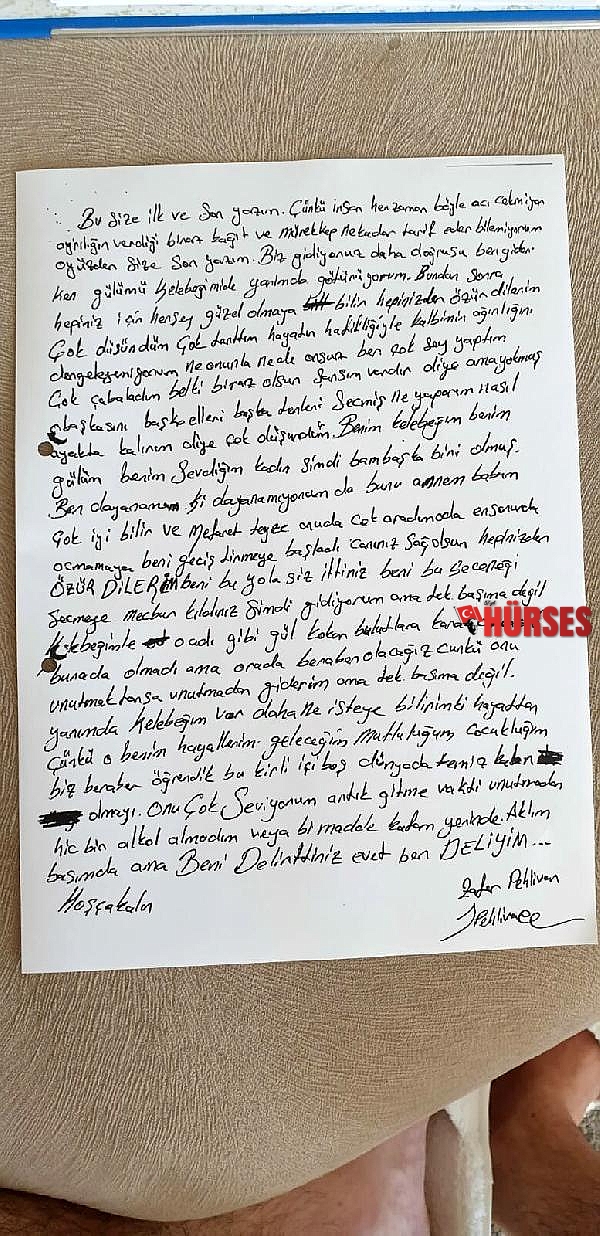 Bu size ilk ve son yazım. Çünkü insan her zaman böyle acı çekmiyor
ayrılığın verdiği biraz kağıt ve mürekkep nekadar tarif eder bilemiyorum
oyüzden size son yazım. Biz gidiyoruz daha doğrusu ben gider
ken gülümü kelebeğimide yanımda götürüyorum. Bundan sonra
hepiniz için herşey güzel olmaya bilir hepinizden özür dilerim
Çok düşündüm çok tarttım hayatın hafifliğiyle kalbimin ağırlığını
dengeleyemiyorum ne onunla nede onsuz ben çok şey yaptım
Çok çabaladım belki biraz olsun şansım vardır diye ama yokmuş
başkasını başka elleri başka tenleri Seçmiş Ne yaparım Nasıl
ayakta kalırım diye çok düşündüm. Benim kelebeğim benim
gülüm benim Sevdiğim kadın şimdi bambaşka birii olmuş.
Ben dayanamam ki dayanamıyorum da bunu annem babam
Çok iyi bilir ve Mehmet teyze onuda çok aradımada ensonunda
açmamaya beni geçiştirmeye başladı canınız Sağolsun hepinizden
ÖZÜR DİLERİM beni bu yola siz ittiniz beni bu Seçeneği
Seçmeye mecbur kıldınız Şimdi gidiyorum ama tek başıma değil
HÜRSES
Kelebeğimle adı gibi gül kokan bulutlara
burada olmadı ama orada beraber olacağız çünkü onu
unutmaktansa unutmadan giderim ama tek başıma değil.
yanımda Kelebeğim var daha Ne isteye bilirimki hayattan
Çünkü o benim hayallerim geleceğim Mutluluğum Çocukluğum
biz beraber öğrendik bu kirli içi boş dünyada temiz kalan
olmayı. Onu Çok Seviyorum artık gitme vakti unutmadan
hiç bir alkol almadım veya bi madde kafam yerinde. Aklım
başımda ama Beni Delirttiniz evet ben DELİYİM...
Hoşçakalın
Pehlivan